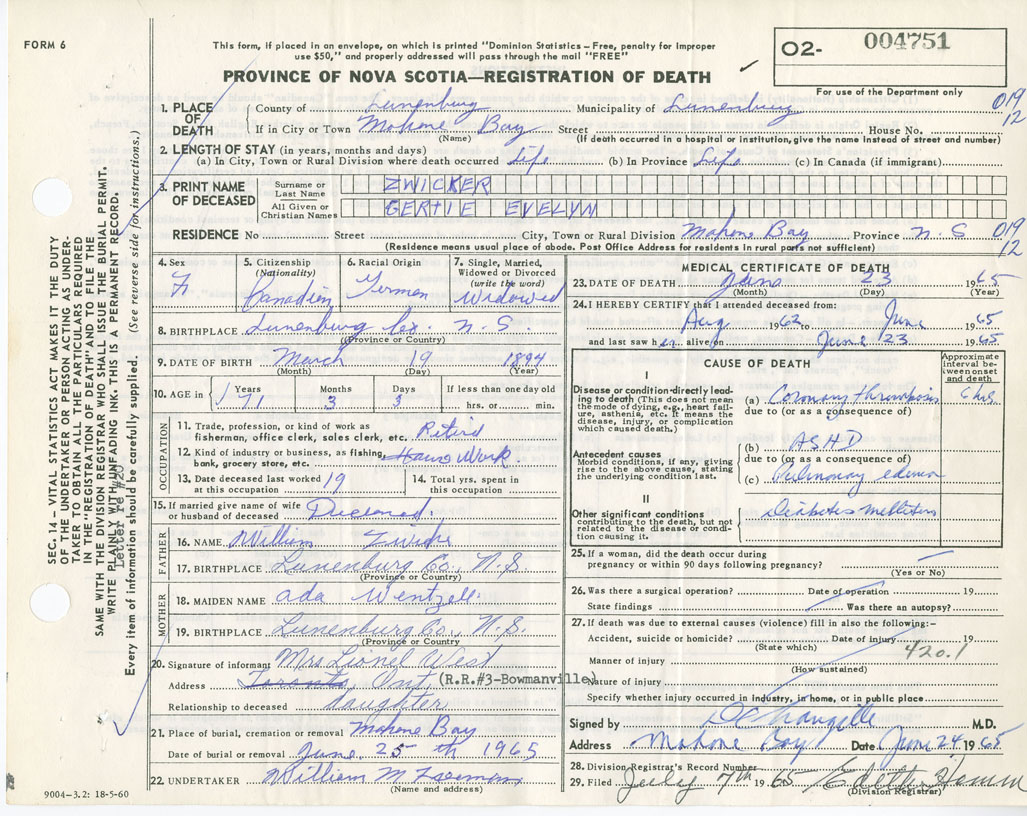 FORM 6
This form, if placed in an envelope, on which is printed "Dominion Statistics – Free, penalty for improper
use $50," and properly addressed will pass through the mail "FREE"
PROVINCE OF NOVA SCOTIA—REGISTRATION OF DEATH
02- 004751
For use of the Department only
019
12
1. PLACE OF DEATH
County of Lunenburg Municipality of Lunenburg
If in City or Town Mahone Bay Street House No.
(Name) (If death occurred in a hospital or institution, give the name instead of street and number)
2. LENGTH OF STAY (in years, months and days)
(a) In City, Town or Rural Division where death occurred Life (b) In Province Life (c) In Canada (if immigrant)
3. PRINT NAME OF DECEASED
Surname or Last Name ZWICKER
All Given or Christian Names GERTIE EVELYN
RESIDENCE No Street City, Town or Rural Division Mahone Bay Province N.S.
019
12
(Residence means usual place of abode. Post Office Address for residents in rural parts not sufficient)
4. Sex
F
5. Citizenship
(Nationality)
Canadian
6. Racial Origin
German
7. Single, Married,
Widowed or Divorced
(write the word)
Widowed
8. BIRTHPLACE Lunenburg Co. N.S.
(Province or Country)
9. DATE OF BIRTH March 19 1894
(Month) (Day) (Year)
10. AGE in
Years Months Days If less than one day old
71 3 3 hrs. or min.
OCCUPATION
11. Trade, profession, or kind of work as
fisherman, office clerk, sales clerk, etc. Retird
12. Kind of industry or business, as fishing,
bank, grocery store, etc. House Work
13. Date deceased last worked
at this occupation 19
14. Total yrs. spent in
this occupation
15. If married give name of wife
or husband of deceased Deceased
FATHER
16. NAME William
17. BIRTHPLACE Lunenburg Co., N.S.
(Province or Country)
MOTHER
18. MAIDEN NAME Ada Wentzell
19. BIRTHPLACE Lunenburg Co., N.S.
(Province or Country)
20. Signature of informant Mrs Lionel West
Address Toronto, Ont (R.R.#3-Bowmanville)
Relationship to deceased daughter
21. Place of burial, cremation or removal Mahone Bay
Date of burial or removal June 25th 1965
22. UNDERTAKER William M
(Name and address)
9004–3.2: 18-5-60
MEDICAL CERTIFICATE OF DEATH
23. DATE OF DEATH June 23 1965
(Month) (Day) (Year)
24. I HEREBY CERTIFY that I attended deceased from:
Aug 1962 to June 1965
and last saw her alive on June 23 1965
CAUSE OF DEATH
Approximate interval between onset and death
I
Disease or condition directly leading to death (This does not mean
the mode of dying, e.g., heart failure, asthenia, etc. It means the
disease, injury, or complication
which caused death.)
(a) Coronary thrombosis 6 hrs
due to (or as a consequence of)
Antecedent causes
Morbid conditions, if any, giving
rise to the above cause, stating
the underlying condition last.
(b) ASHD
due to (or as a consequence of)
(c) Pulmonary edema
II
Other significant conditions
contributing to the death, but not
related to the disease or condition causing it.
Diabetes Mellitus
25. If a woman, did the death occur during
pregnancy or within 90 days following pregnancy?
(Yes or No)
26. Was there a surgical operation? Date of operation 19
State findings Was there an autopsy?
27. If death was due to external causes (violence) fill in also the following:–
Accident, suicide or homicide? Date of injury 19
(State which)
420.1
Manner of injury
(How sustained)
Nature of injury
Specify whether injury occurred in industry, in home, or in public place
Signed by M.D.
Address Mahone Bay Date June 24 1965
28. Division Registrar's Record Number
29. Filed July 7th 1965
(Division Registrar)
SEC. 14 – VITAL STATISTICS ACT MAKES IT THE DUTY
OF THE UNDERTAKER OR PERSON ACTING AS UNDERTAKER TO OBTAIN ALL THE PARTICULARS REQUIRED
IN THE "REGISTRATION OF DEATH" AND TO FILE THE
SAME WITH THE DIVISION REGISTRAR WHO SHALL ISSUE THE BURIAL PERMIT.
WRITE PLAINLY WITH UNFADING INK. THIS IS A PERMANENT RECORD.
Letter re #20
Every item of information should be carefully supplied. (See reverse side for instructions.)